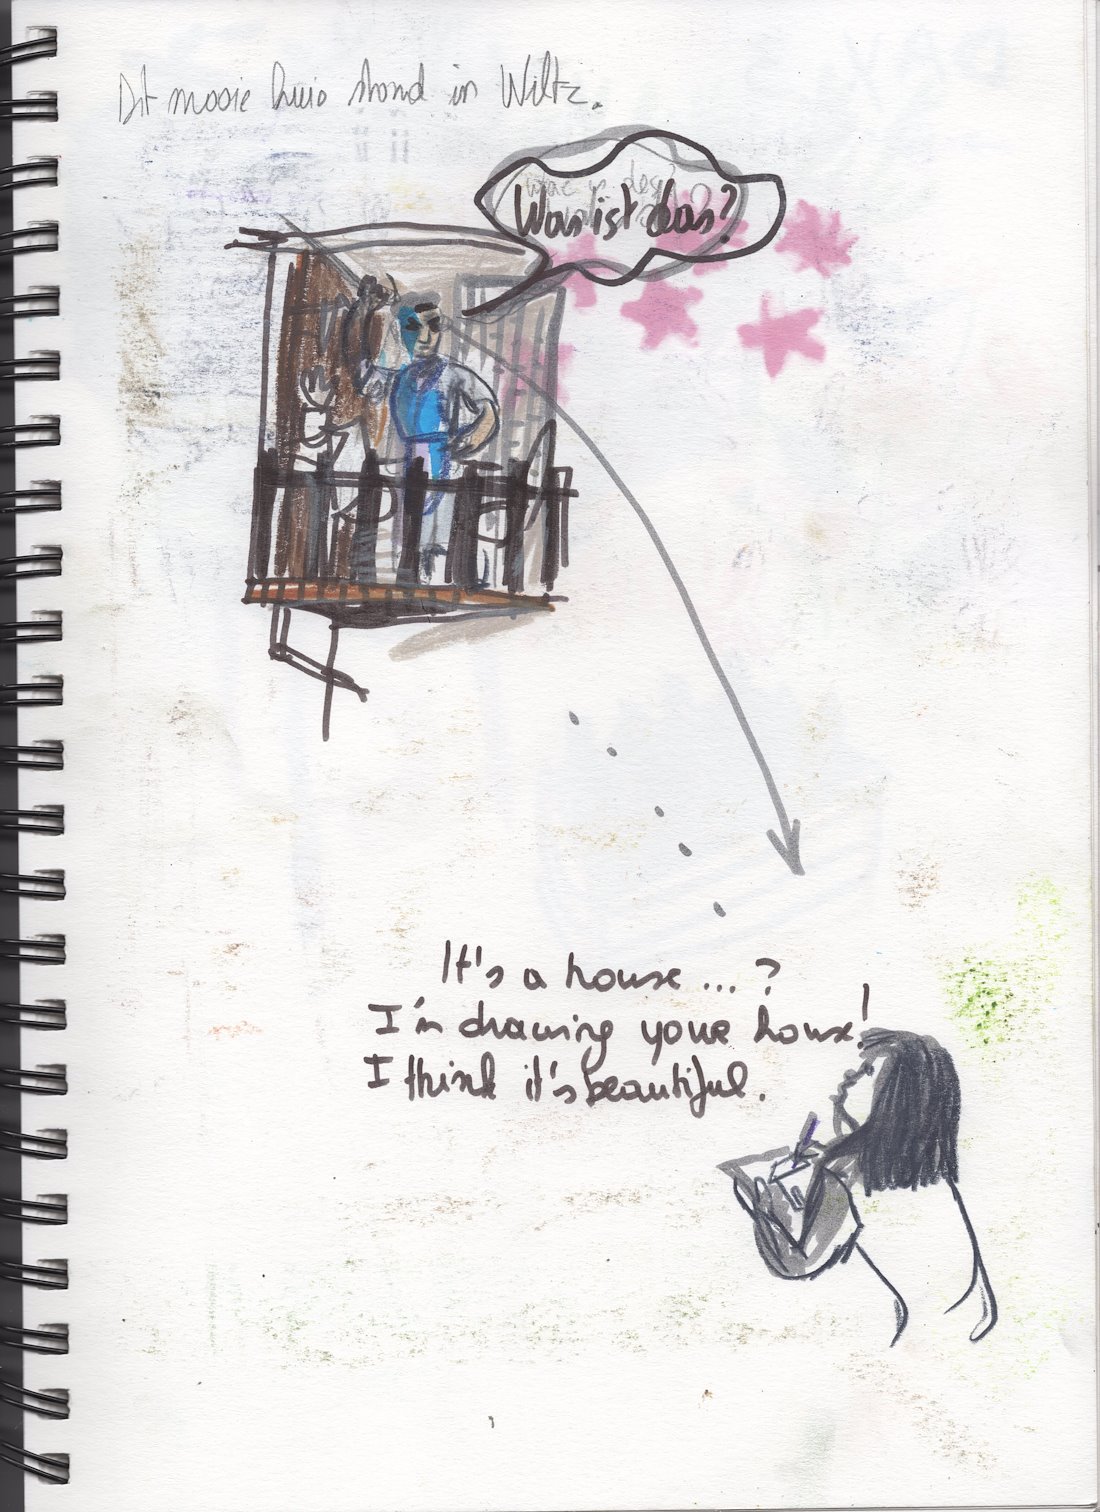 Dit mooie huis stond in Wiltz.
Was ist das?
It's a house...?
I'm drawing your house!
I think it's beautiful.